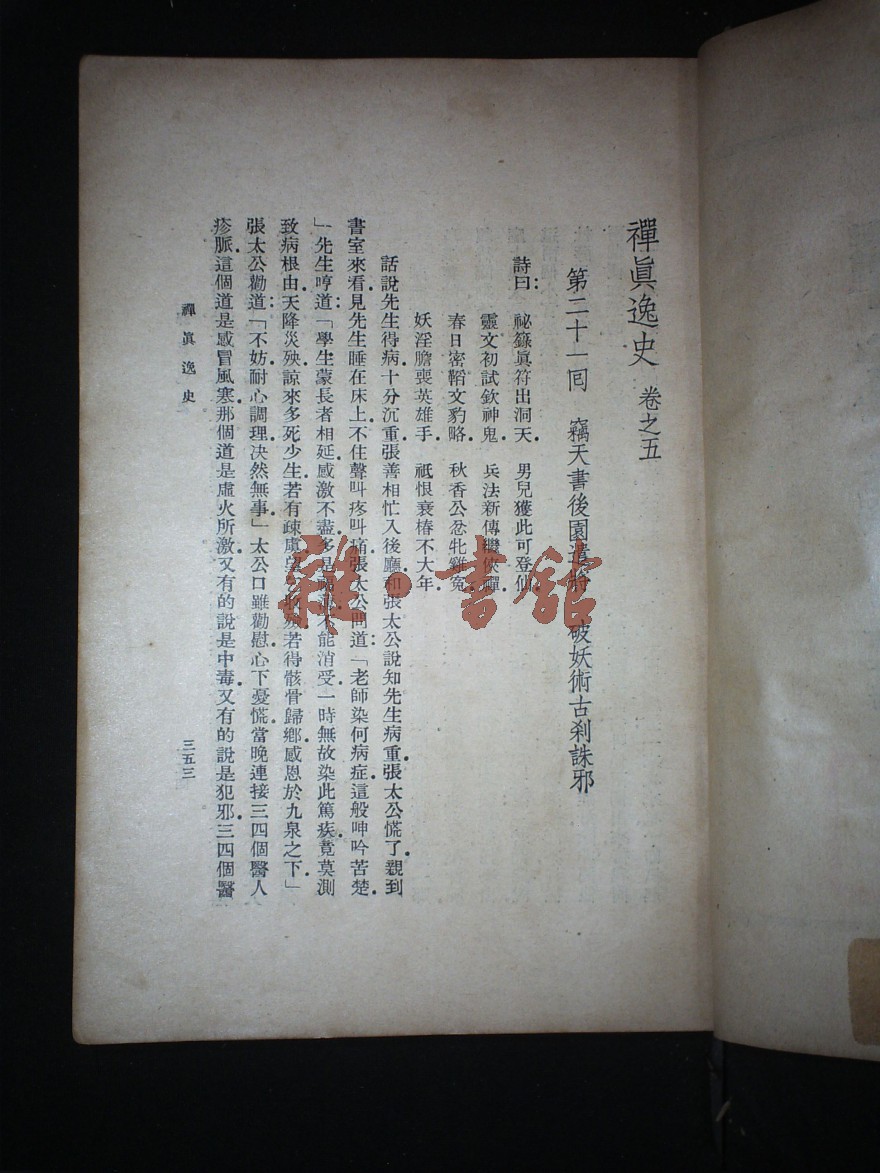 禪眞逸史 卷之五
第二十一回 竊天書後園 破妖術古刹誅邪
詩曰： 祕籙眞符出洞天． 男兒獲此可登仙．
靈文初試欽神鬼． 兵法新傳機俠禪．
春日密韜文豹略． 秋香公忿牝雞寃．
妖淫膽喪英雄手． 祇恨衰椿不大年．
話說先生得病．十分沉重．張善相忙入後廳．和張太公說知先生病重．張太公慌了．親到
書室來看．見先生睡在床上．不住聲叫疼叫痛．張太公問道：「老師染何病症．這般呻吟苦楚．
」先生哼道：「學生蒙長者相延．感激不盡．多是 不能消受．一時無故染此篤疾．竟莫測
致病根由．天降災殃．諒來多死少生．若有疎虞．望 若得骸骨歸鄉．感恩於九泉之下」
張太公勸道：「不妨．耐心調理．决然無事」太公口雖勸慰．心下憂慌．當晚連接三四個醫人
疹脈．這個道是感冒風寒．那個道是虛火所激．又有的說是中毒．又有的說是犯邪．三四個醫
禪眞逸史
三五三
雜·書館